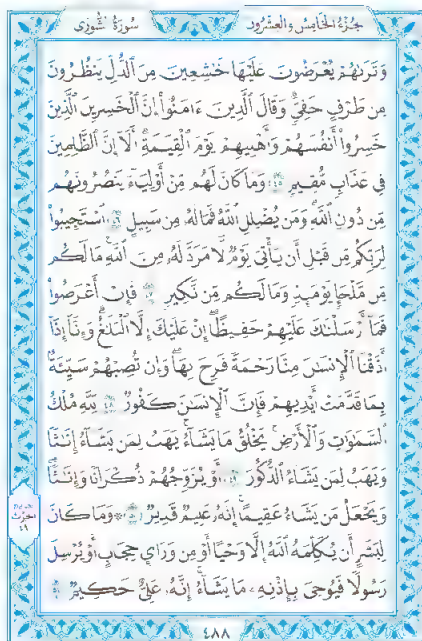 سُورَةُ الشُّورَى
جُزْءُ الْخَامِسِ وَالْعِشْرُونَ
وَتَرَىٰهُمْ يُعْرَضُونَ عَلَيْهَا خَٰشِعِينَ مِنَ ٱلذُّلِّ يَنظُرُونَ
مِن طَرْفٍ خَفِيٍّ وَقَالَ ٱلَّذِينَ ءَامَنُوٓا۟ إِنَّ ٱلْخَٰسِرِينَ ٱلَّذِينَ
خَسِرُوٓا۟ أَنفُسَهُمْ وَأَهْلِيهِمْ يَوْمَ ٱلْقِيَٰمَةِ أَلَآ إِنَّ ٱلظَّٰلِمِينَ
فِى عَذَابٍ مُّقِيمٍ ٤٥ وَمَا كَانَ لَهُم مِّنْ أَوْلِيَآءَ يَنصُرُونَهُم
مِّن دُونِ ٱللَّهِ وَمَن يُضْلِلِ ٱللَّهُ فَمَا لَهُۥ مِن سَبِيلٍ ٤٦ ٱسْتَجِيبُوا۟
لِرَبِّكُم مِّن قَبْلِ أَن يَأْتِىَ يَوْمٌ لَّا مَرَدَّ لَهُۥ مِنَ ٱللَّهِ مَا لَكُم
مِّن مَّلْجَإٍ يَوْمَئِذٍ وَمَا لَكُم مِّن نَّكِيرٍ ٤٧ فَإِنْ أَعْرَضُوا۟
فَمَآ أَرْسَلْنَٰكَ عَلَيْهِمْ حَفِيظًا إِنْ عَلَيْكَ إِلَّا ٱلْبَلَٰغُ وَإِنَّآ إِذَآ
أَذَقْنَا ٱلْإِنسَٰنَ مِنَّا رَحْمَةً فَرِحَ بِهَا وَإِن تُصِبْهُمْ سَيِّئَةٌۢ
بِمَا قَدَّمَتْ أَيْدِيهِمْ فَإِنَّ ٱلْإِنسَٰنَ كَفُورٌ ٤٨ لِّلَّهِ مُلْكُ
ٱلسَّمَٰوَٰتِ وَٱلْأَرْضِ يَخْلُقُ مَا يَشَآءُ يَهَبُ لِمَن يَشَآءُ إِنَٰثًا
وَيَهَبُ لِمَن يَشَآءُ ٱلذُّكُورَ ٤٩ أَوْ يُزَوِّجُهُمْ ذُكْرَانًا وَإِنَٰثًا
وَيَجْعَلُ مَن يَشَآءُ عَقِيمًا إِنَّهُۥ عَلِيمٌ قَدِيرٌ ٥٠ ۞ وَمَا كَانَ
لِبَشَرٍ أَن يُكَلِّمَهُ ٱللَّهُ إِلَّا وَحْيًا أَوْ مِن وَرَآئِ حِجَابٍ أَوْ يُرْسِلَ
رَسُولًا فَيُوحِىَ بِإِذْنِهِۦ مَا يَشَآءُ إِنَّهُۥ عَلِىٌّ حَكِيمٌ ٥١
٤٨٨